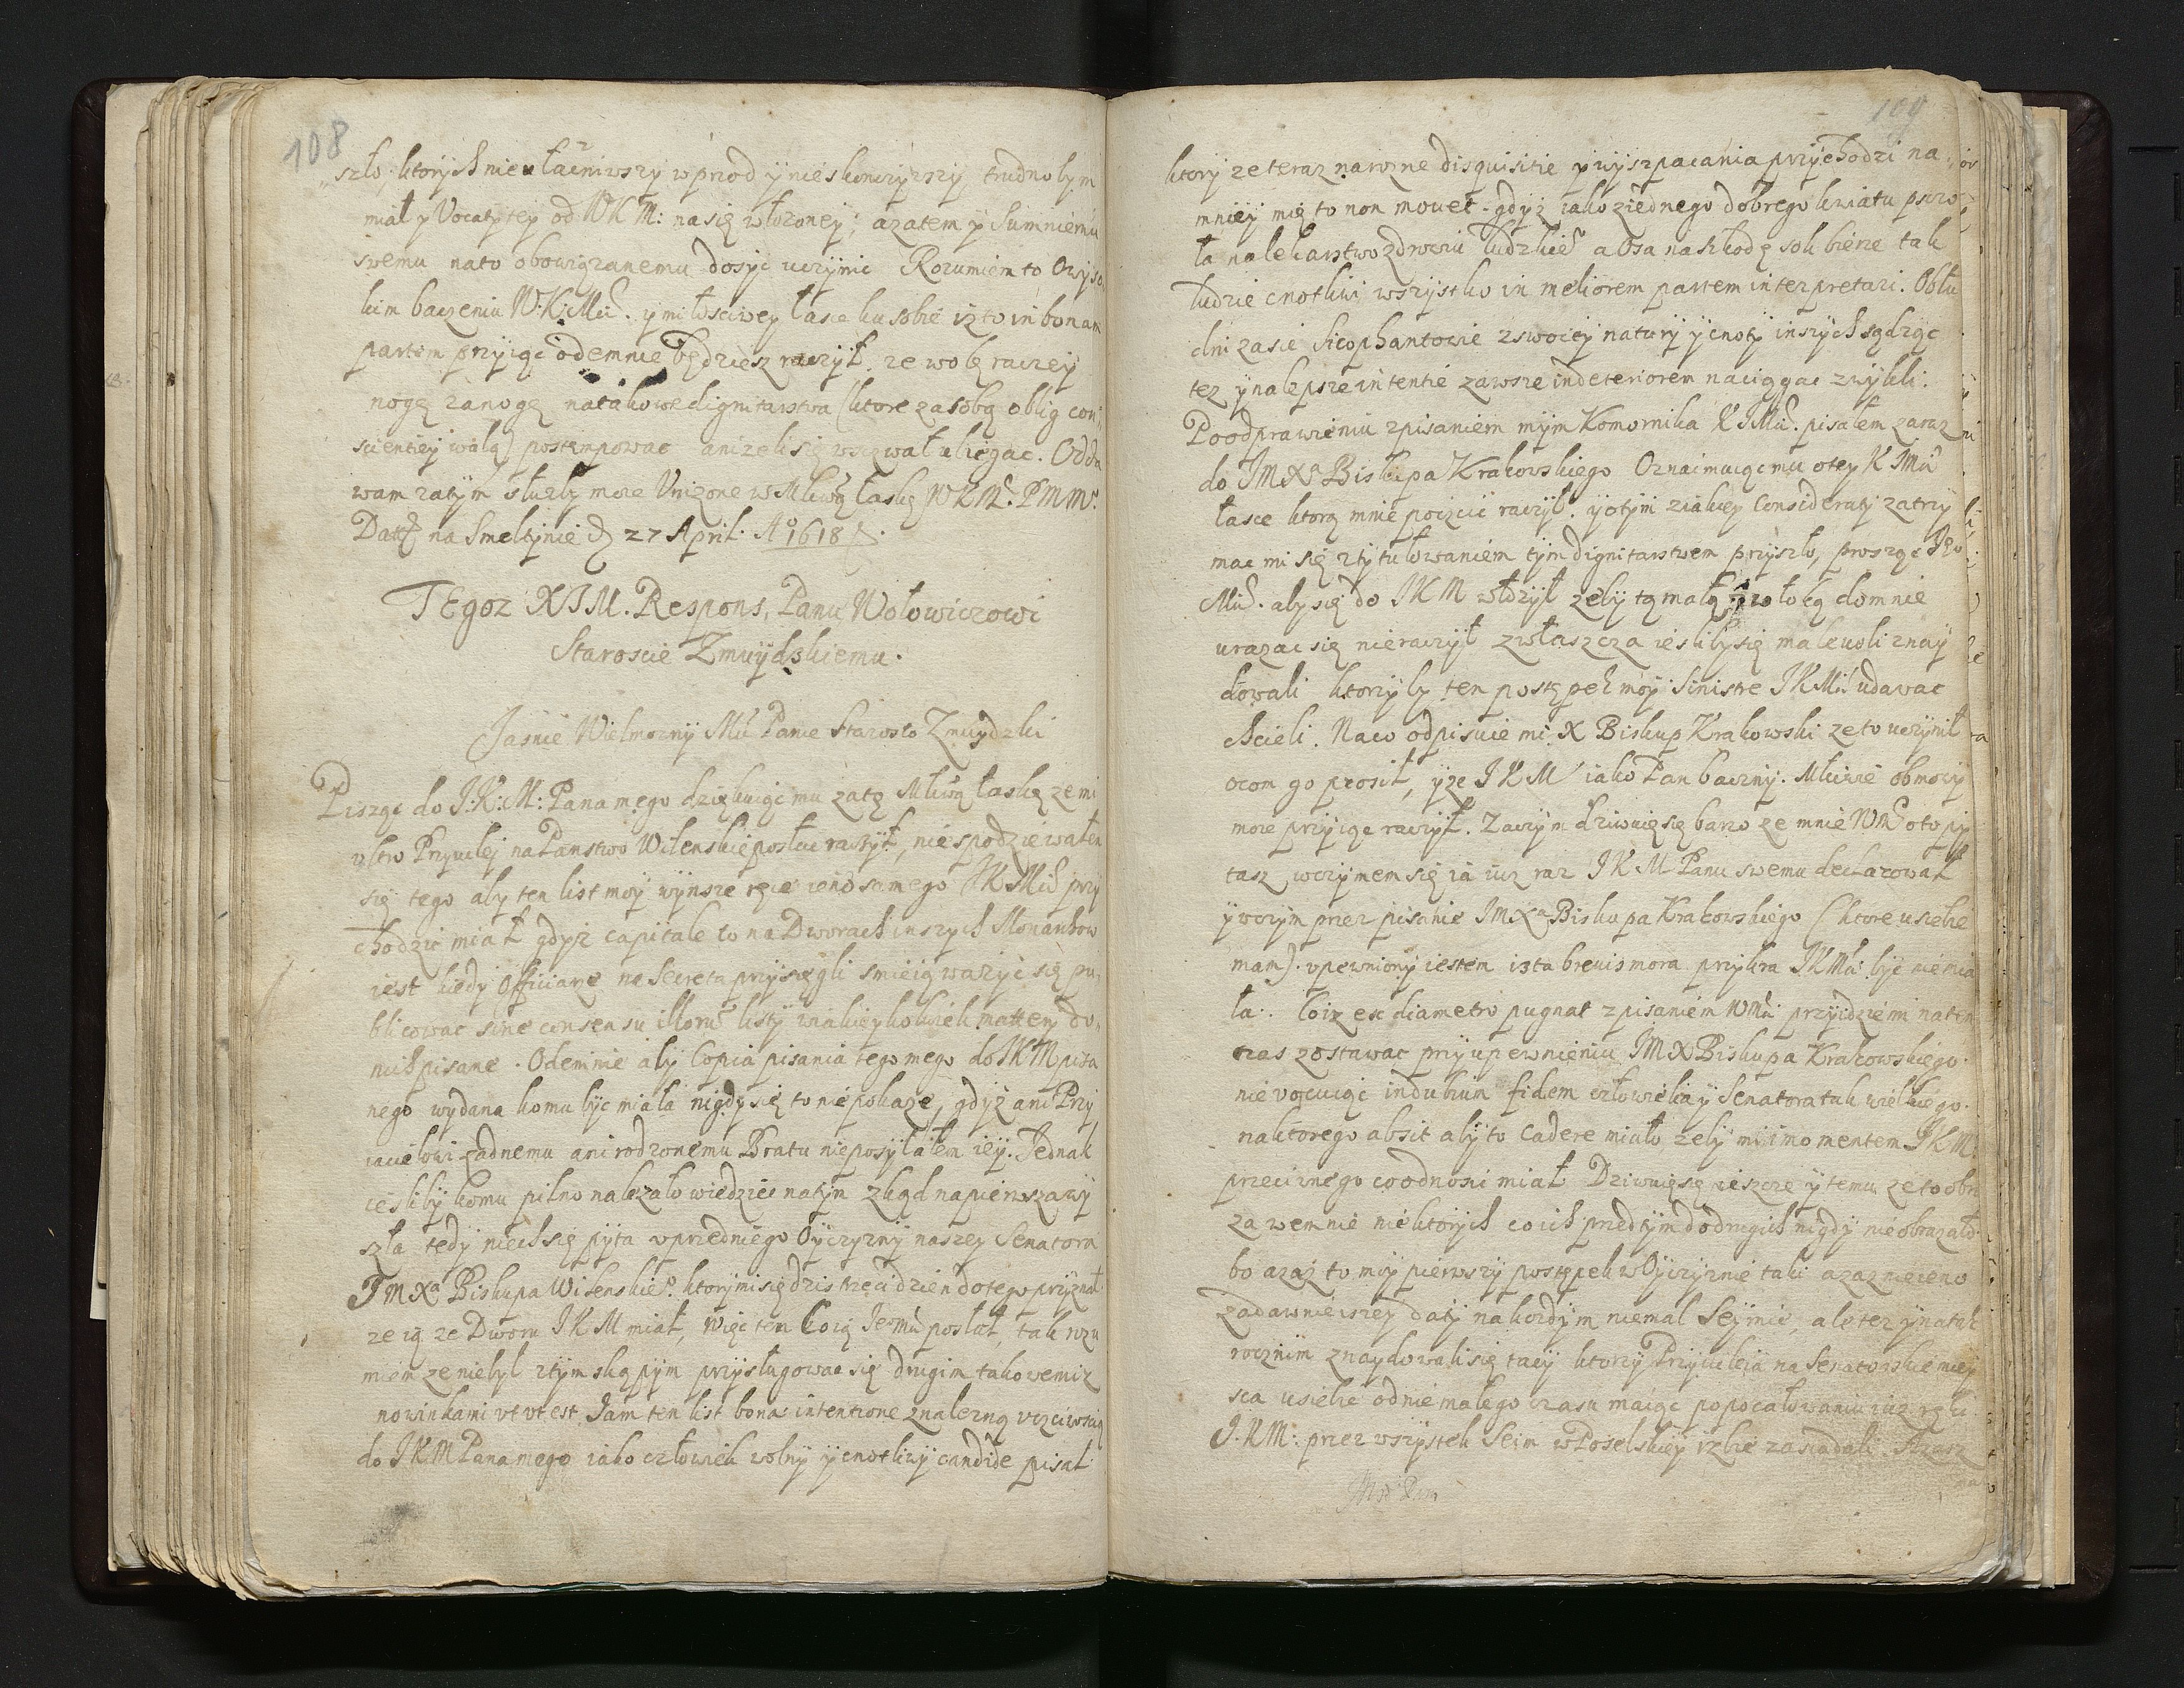 108
szło, ktorych nie ułacniwszy wprzod y nieskonczywszy trudno bym
miał y Vocatytey od WKM: na się włozoney; a zatem y Sumnieniu
swemu nato obowiązanemu dosyc uczynic Rozumiem to O wyso
kim baczeniu W:K:Mci. y miłosciwey łasce ku sobie iz to in bonam
partem przyiąc odemnie będziesz raczył. ze wolę raczey
nogę za nogę na takowe dignitarstwa (ktore za sobą oblig con:
scientiey walą) postempowac anizeli się ubiegac. Odda
wam zatym słuzby moie Unizone w Młciwą łaskę WKM. PMM.
Datt na Smeltynie D 27 April: Ao 1618
TEgoz XIM. Respons, Panu Wołowiczowi
Staroscie Zmuydskiemu.
Jasnie Wielmozny Mci Panie Starosto Zmuydzki
Pisząc do J:K:M: Pana mego dziękuiąc mu za tę Młciwą łaskę ze mi
ultro Przywilej na Panstwo Wilenskie posłac raczył, niespodziewałem
się tego aby ten list moy w ynsze ręce ieno samego JKMci przy
chodzic miał gdyz capitale to na Dworach inszych Monarchow
iest kiedy Officiare na Secreta przysięgli smieią wazyc się pu:
blicowac sine consensu illoru listy w iakieykolwiek mattery do
nich pisane. Odemnie aby Copia pisania tego mego do JKM pisa
nego wydana komu byc miała nigdy się to nie pokaze, gdyz ani Przy
iacielowi zadnemu ani rodzonemu Bratu nieposyłałem iey. Jednak
iesliby komu pilno nalezało wiedziec natym zkąd napierwsza wy
szła tedy niech się pyta uprzedniego Oyczyzny naszey Senatora
JmXa Biskupa Wilenskieo. ktory mi się dzis trzeci dzien do tego przyznał
ze ią ze Dworu JKM miał, więc ten Co ią Jeomci posłał, tak rozu
miem ze niebył z tym skąpym przysługowac się drugim takowemiz
nowinkami ut ut est Jam ten list bona intentione z nalezną uczciwoscią
do JKM Pana mego iako człowiek wolny y cnotliwy candide pisał
109
ktory ze teraz na rozne disquisitie y wyszpacania przychodzi na
mniey mię to non movet. gdyz iako z iednego dobrego kwiatu pszczo
ła na lekarstwo zdrowiu ludzkieo a Osa na szkodę sok bierze tak
ludzie cnotliwi wszystko in meliorem partem interpretari. Obłu
dni zasie Sicophantowie z swoiey natury y cnoty inszych sądząc
tez y nalepsze intentie zawsze in deteriorem naciągac zwykli.
Po odprawieniu z pisaniem mym Komornika KJMci. pisałem zaraz
do JMXa Biskupa Krakowskiego Oznaimuiąc mu o tey KJMci
łasce ktorą mnie poczcic raczył. y o tym z iakiey Consideraty zatrzy
mac mi się z tytułowaniem tym dignitarstwem przyszło, prosząc Jeo
Mci. aby się do JKM włozył zeby tą małą zwłoką do mnie
urazac się nieraczył zwłaszcza iesliby się malevoli znay
dowali ktorzyby ten postępek moy Sinistre JKMci udawac
chcieli. Naco odpisuie mi X Biskup Krakowski ze to uczynił
oczom go prosił, y ze JKM iako Pan baczny. Młciwie obmowy
moie przyiąc raczył. Zaczym dziwuię się barzo ze mnie WM o to py
tasz w czymem się ia iuz raz JKM Panu swemu declarował
y w czym przez pisanie JMXa Biskupa Krakowskiego (ktore u siebie
mam). upewniony iestem iz ta brevis mora przykra JKMci byc niemia
ła. Co iz ex diametro pugnat z pisaniem WMci przyidzie mi na ten
czas zostawac przy upewnieniu JMX Biskupa Krakowskiego.
nie vocuiąc in dubium fidem człowieka y Senatora tak wielkiego.
naktorego absit aby to cadere miało, zeby mi imo mentem JKM:
przeciwnego co odnosic miał Dziwuię się ieszcze y temu ze to obra
za wemnie niektorych co ich przed tym do drugich nigdy nieobrazało.
bo azaz to moy pierwszy postępek w Oyczyznie taki azaz nieieno
zadawnieyszey daty na kozdym niemal Seymie, ale tez y na tak
rocznim znaydowali się tacy ktorzy Przywileia na Senatorskie miey
sca u siebie od niemałego czasu maiąc po pocałowaniu iuz ręki
J.KM: przez wszystek Seim w Poselskiey izbie zasiadali